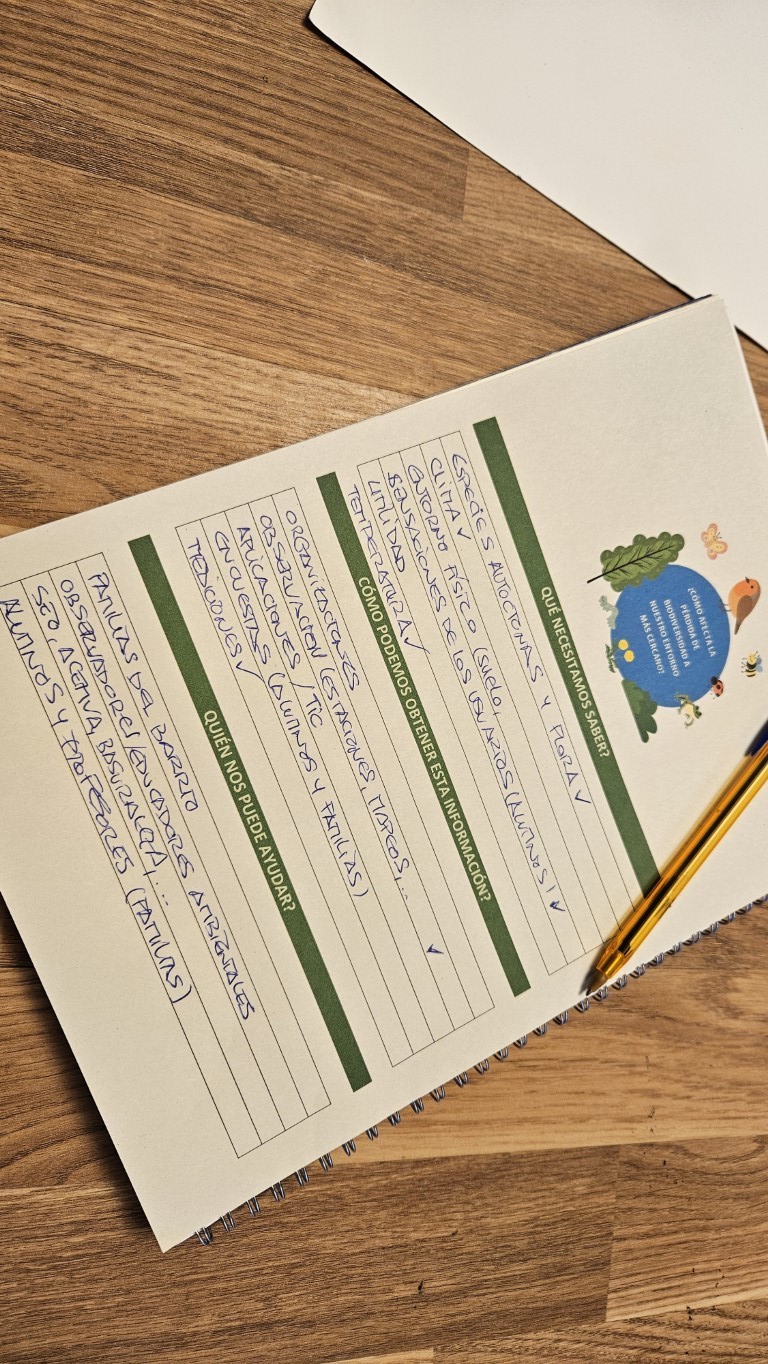 ¿CÓMO AFECTA LA
PÉRDIDA DE
BIODIVERSIDAD A
NUESTRO ENTORNO
MÁS CERCANO?
QUÉ NECESITAMOS SABER?
ESPECIES AUTOCTONAS Y FLORA ✓
CLIMA ✓
ENTORNO FÍSICO (SUELO,
SENSACIONES DE LOS USUARIOS (ALUMNOS) ✓
UTILIDAD
TEMPERATURA ✓
CÓMO PODEMOS OBTENER ESTA INFORMACIÓN?
ORGANIZACIONES
OBSERVACION (ESTACIONES, MAREOS,... ✓
APLICACIONES / TIC
ENCUESTAS (ALUMNOS Y FAMILIAS)
MEDICIONES ✓
QUIÉN NOS PUEDE AYUDAR?
FAMILIAS DEL BARRIO
OBSERVADORES/EDUCADORES AMBIENTALES
SEO, ACTIVA, BASURALEZA,...
ALUMNOS Y PROFESORES (FAMILIAS)